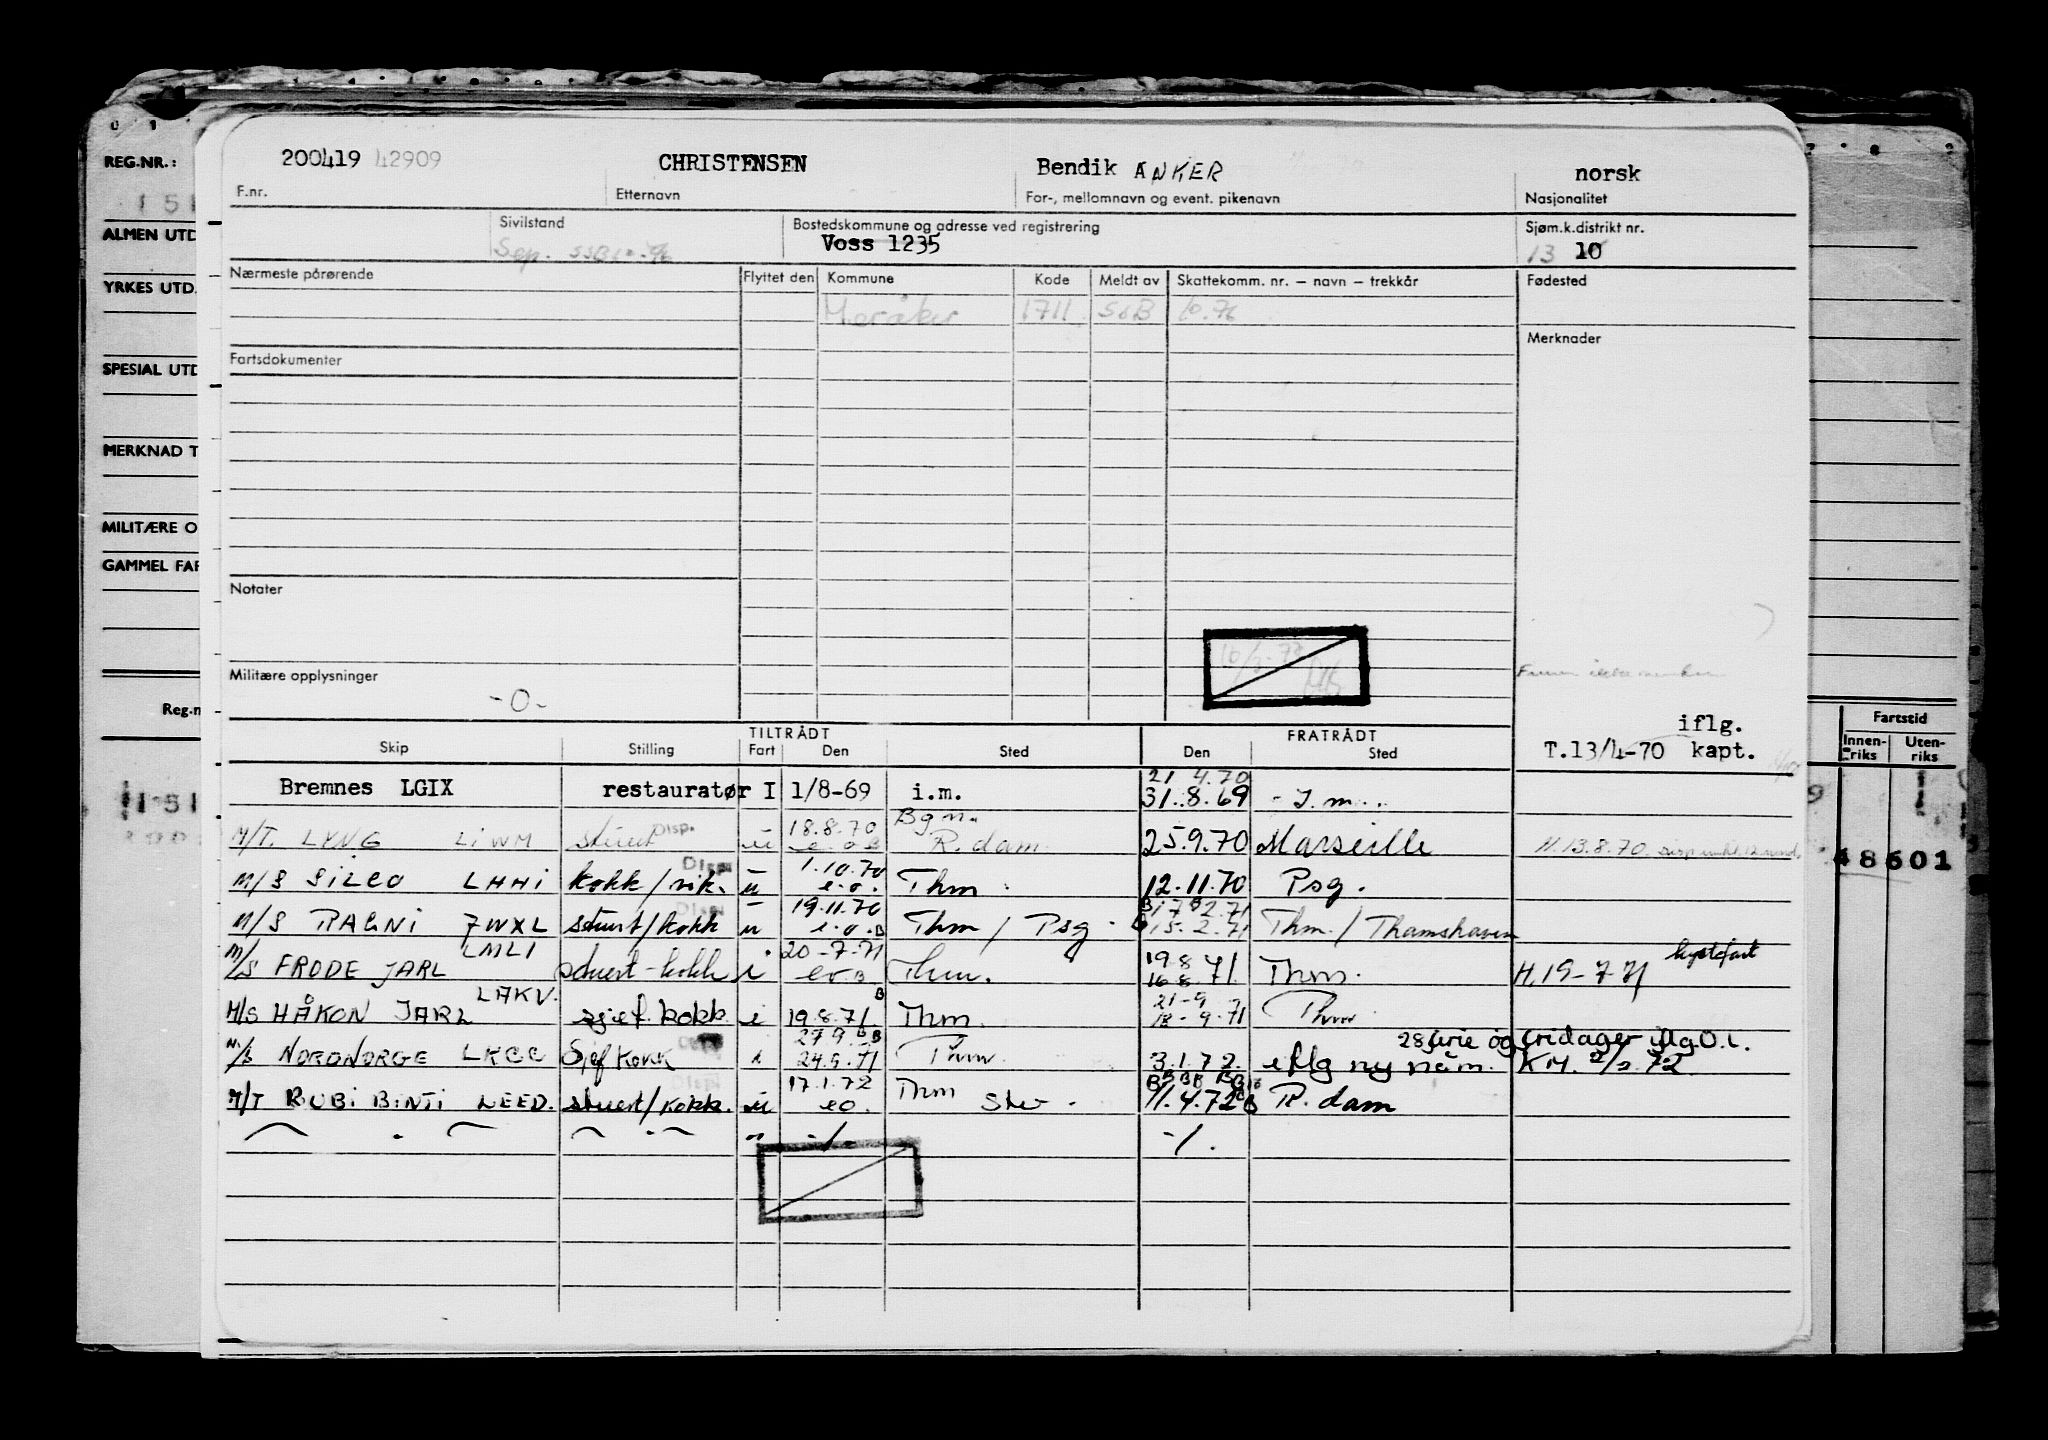 REG.NR.:
ALMEN UTD
YRKES UTD.
SPESIAL UTD
MERKNAD T
MILITÆRE O
GAMMEL FAR
200419 42909 CHRISTENSEN Bendik ANKER norsk
F.nr. Etternavn For-, mellomnavn og event. pikenavn Nasjonalitet
Sivilstand Bostedskommune og adresse ved registrering Sjøm.k.distrikt nr.
Sep. Voss 1235 13 10
Nærmeste pårørende Flyttet den Kommune Kode Meldt av Skattekomm. nr. – navn – trekkår Fødested
Meråker 1711 SSB 10.76
Merknader
Fartsdokumenter
Notater
Militære opplysninger
-0-
Reg.n
TILTRÅDT FRATRÅDT iflg.
Skip Stilling Fart Den Sted Den Sted T.13/4-70 kapt.
Fartstid
Innen-riks Uten-riks
21 4.70
Bremnes LGIX restauratør I 1/8-69 i.m. 31.8.69 - I.m..
Disp. 18.8.70 Bgn.
M/T. LYNG LIWM stuert u e.o.B R.dam 25.9.70 Marseille H.13.8.70.
Disp 1.10.70
M/S SILCO LHHI kokk/rik. u e.o. Thm. 12.11.70 Psg.
Disp 19.11.70 17 2.71
M/S RAGNI JWXL stuert/kokk u e.o.B Thm / Psg. 15.2.71 Thm./Thamshavn
LMLI 20-7-71 19 8 kystfart
M/S FRODE JARL stuert-kokk i eo B Thm. 16.8.71. Thm. H.19-7-71
LAKV. B 21-9
M/S HÅKON JARL sjef.kokk. i 19.8.71. Thm. 18-9.71 Thm
27.9.BB 28 ferie og fridager iflg O.i.
M/S NORDNORGE LKCC Sjefkokk i 24.9.71 Thm. 3.1.72. iflg ny møn. KM. 2/2.72.
Disp 17.1.72 BB BB BB
M/T RUBI BINTI LEED. stuert/kokk. u eo. Thm Stev. 1/1.4.72 B R.dam
- . - - . - " -/. -/.
48601